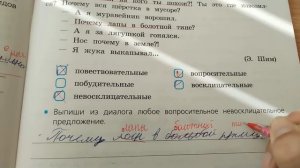 Почему вся шёрстка в мусоре?
— А я муравейник ворошил.
— Почему лапы в болотной тине?
— А я за лягушкой гонялся.
— Нос почему в земле?!
— Я жука выкапывал...
(Э. Шим)
повествовательные вопросительные
побудительные восклицательные
невосклицательные
• Выпиши из диалога любое вопросительное невосклицательное
предложение.
лапы болотной
Почему в